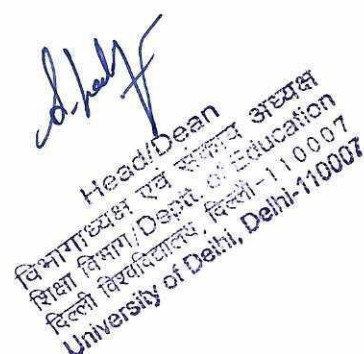 Head/Dean
विभागाध्यक्ष एवं संकाय अध्यक्ष
शिक्षा विभाग/Deptt of Education
दिल्ली विश्वविद्यालय, दिल्ली-110007
University of Delhi, Delhi-110007